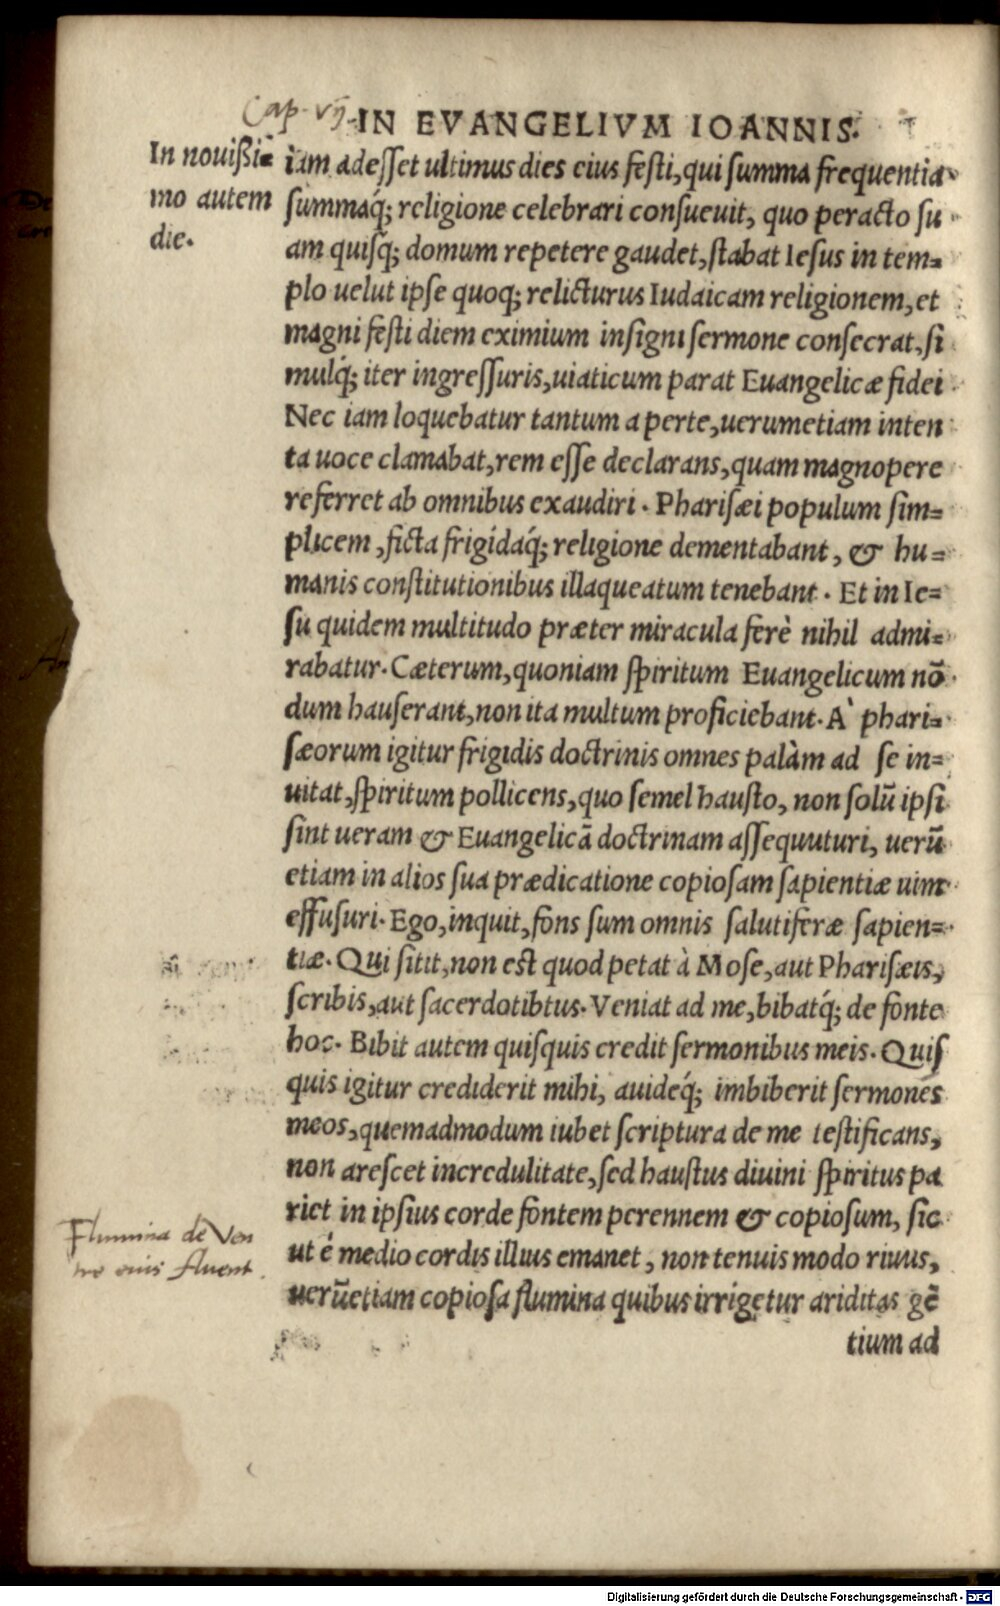 Cap. vij.
IN EVANGELIVM IOANNIS.
In nouißi=
mo autem
die.
iam adesset ultimus dies eius festi, qui summa frequentia
summaq́; religione celebrari consueuit, quo peracto su
am quisq́; domum repetere gaudet, stabat Iesus in tem=
plo uelut ipse quoq; relicturus Iudaicam religionem, et
magni festi diem eximium insigni sermone consecrat, si
mulq́; iter ingressuris, uiaticum parat Euangelicæ fidei
Nec iam loquebatur tantum aperte, uerumetiam inten
ta uoce clamabat, rem esse declarans, quam magnopere
referret ab omnibus exaudiri. Pharisæi populum sim=
plicem, ficta frigidaq́; religione dementabant, & hu=
manis constitutionibus illaqueatum tenebant. Et in Ie=
su quidem multitudo præter miracula ferè nihil admi=
rabatur. Cæterum, quoniam spiritum Euangelicum nō
dum hauserant, non ita multum proficiebant. A` phari=
sæorum igitur frigidis doctrinis omnes palàm ad se in=
uitat, spiritum pollicens, quo semel hausto, non solū ipsi
sint ueram & Euangelicā doctrinam assequuturi, uerū
etiam in alios sua prædicatione copiosam sapientiæ uim
effusuri. Ego, inquit, fons sum omnis salutiferæ sapien=
tiæ. Qui sitit, non est quod petat à Mose, aut Pharisæis,
scribis, aut sacerdotibtus. Veniat ad me, bibatq́; de fonte
hoc. Bibit autem quisquis credit sermonibus meis. Quis
quis igitur crediderit mihi, auideq́; imbiberit sermones
meos, quemadmodum iubet scriptura de me testificans,
non arescet incredulitate, sed haustus diuini spiritus pa
riet in ipsius corde fontem perennem & copiosum, sic
ut é medio cordis illius emanet, non tenuis modo riuus,
uerūetiam copiosa flumina quibus irrigetur ariditas gē
tium ad
Flumina de Ven
tre eius fluent.
Digitalisierung gefördert durch die Deutsche Forschungsgemeinschaft - DFG